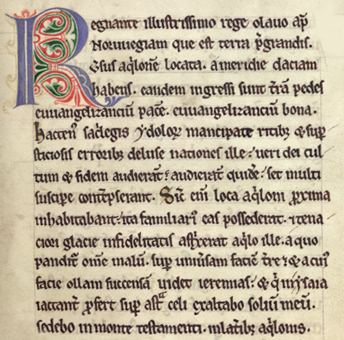 Regnante illustrissimo rege olauo ap̄
Noruuegiam que est terra p̄grandis.
Ꝟsus aq̇lonē locata. a meridie daciam
habens. eandem ingressi sunt t̄rā pedes
euuangelizanciū pacē. euuangelizanciū bona.
hacten᷒ sac̓legis ⁊ dolor̄ mancipate ritib; & sup̄
sticiosis errorib; deluse nationes ille. ueri dei cul
tum & fidem audierāt. audierāt quidē. set multi
suscipe contēpserant. Siⲥ̄ eni loca aq̇loni p̄xima
inhabitabant. ita familiari᷒ eas possederat. ⁊ tena
ciori glacie infidelitatis astrīxerat aq̇lo ille. a quo
panditͬ om̄e malū. sup̄ uniūsam faciē t̄re. & a cui᷒
facie ollam succensā uidet ieremias. & q̇ ī ẏsaia
iactant̄ p̄fert sup̄ ast̄ celi exaltabo soliū meū.
sedebo in monte testamenti. in lat̄ib; aq̇lonis.